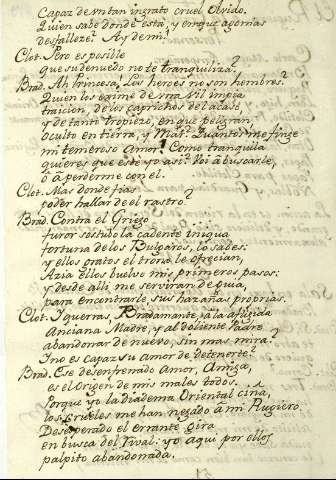 Capaz de un tan ingrato cruel Olvido.
Quien sabe donde està, y en que agonias
desfalleze? Ay de mi!
Clot. Pero es posible
que su denuedo no te tranquiliza?
Brad. Ah Princesa! Los heroes no son hombres?
Quien los exime de una vil impia
traicion, de los caprichos del acaso,
y de tanto tropiezo, en que peligran,
oculto en tierra, y Mar? Quantos me finge
mi temeroso Amor! Como tranquila
quieres que estè yo asi? Voi à buscarle,
ò à perderme con el.
Clot. Mas donde fias
poder hallar de el rastro?
Brad. Contra el Griego
furor sostubo la cadente iniqua
fortuna de los Bulgaros, lo sabes:
y ellos gratos el trono le ofrecian,
Azia ellos buelvo mis primeros pasos:
y desde alli me serviran de guia,
para encontrarle sus hazañas proprias.
Clot. I querràs, Bradamante, à la afligida
Anciana Madre, y al doliente Padre
abandonar de nuevo, sin mas mira?
I no es capaz su amor de detenerte?
Brad. Ese desenfrenado Amor, Amiga,
es el Origen de mis males todos.
Porque yo la diadema Oriental ciña,
los crueles me han negado à mi Rugiero.
Desesperado el errante gira
en busca del Rival: yo aqui por ellos
palpito abandonada.